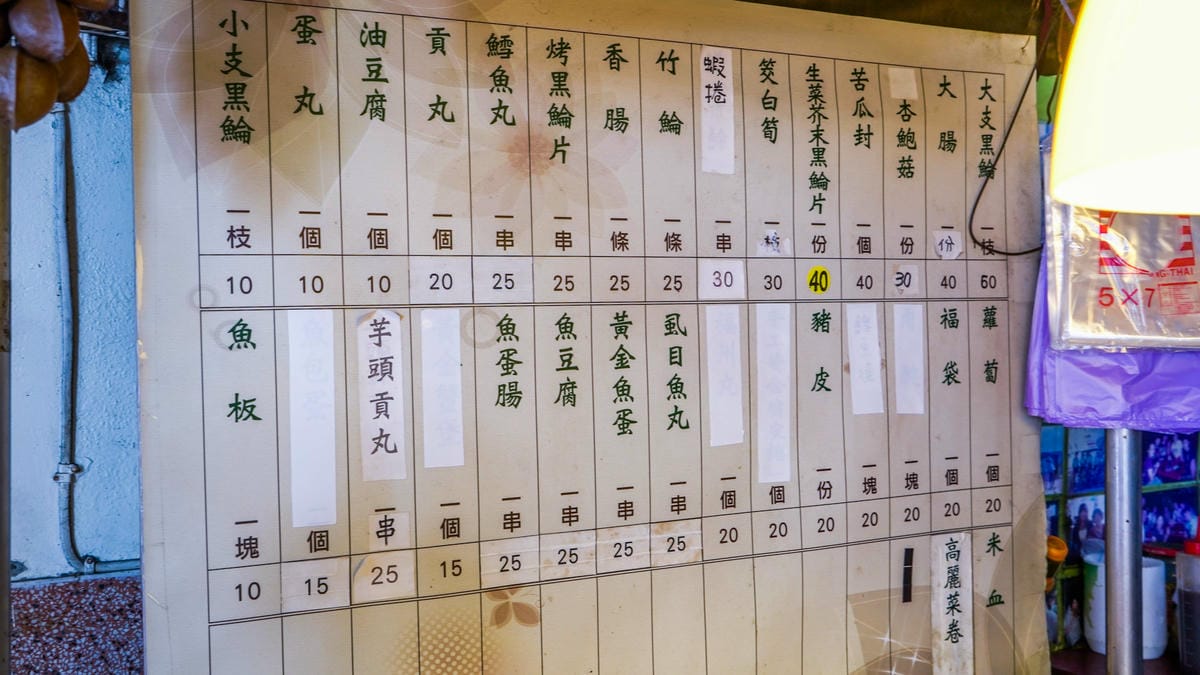 大支黑鯩 一枝 60
大腸 一份 40
杏鮑菇 一份 30
苦瓜封 一個 40
生菜芥末黑鯩片 一份 40
筊白筍 一 30
蝦捲 一串 30
竹鯩 一條 25
香腸 一條 25
烤黑鯩片 一串 25
鱈魚丸 一串 25
貢丸 一個 20
油豆腐 一個 10
蛋丸 一個 10
小支黑鯩 一枝 10
蘿蔔 一個 20
福袋 一個 20
一塊 20
一塊 20
豬皮 一份 20
一個 20
一個 20
虱目魚丸 一串 25
黃金魚蛋 一串 25
魚豆腐 一串 25
魚蛋腸 一串 25
一個 15
芋頭貢丸 一串 25
個 15
魚板 一塊 10
米血
高麗菜卷
5×7